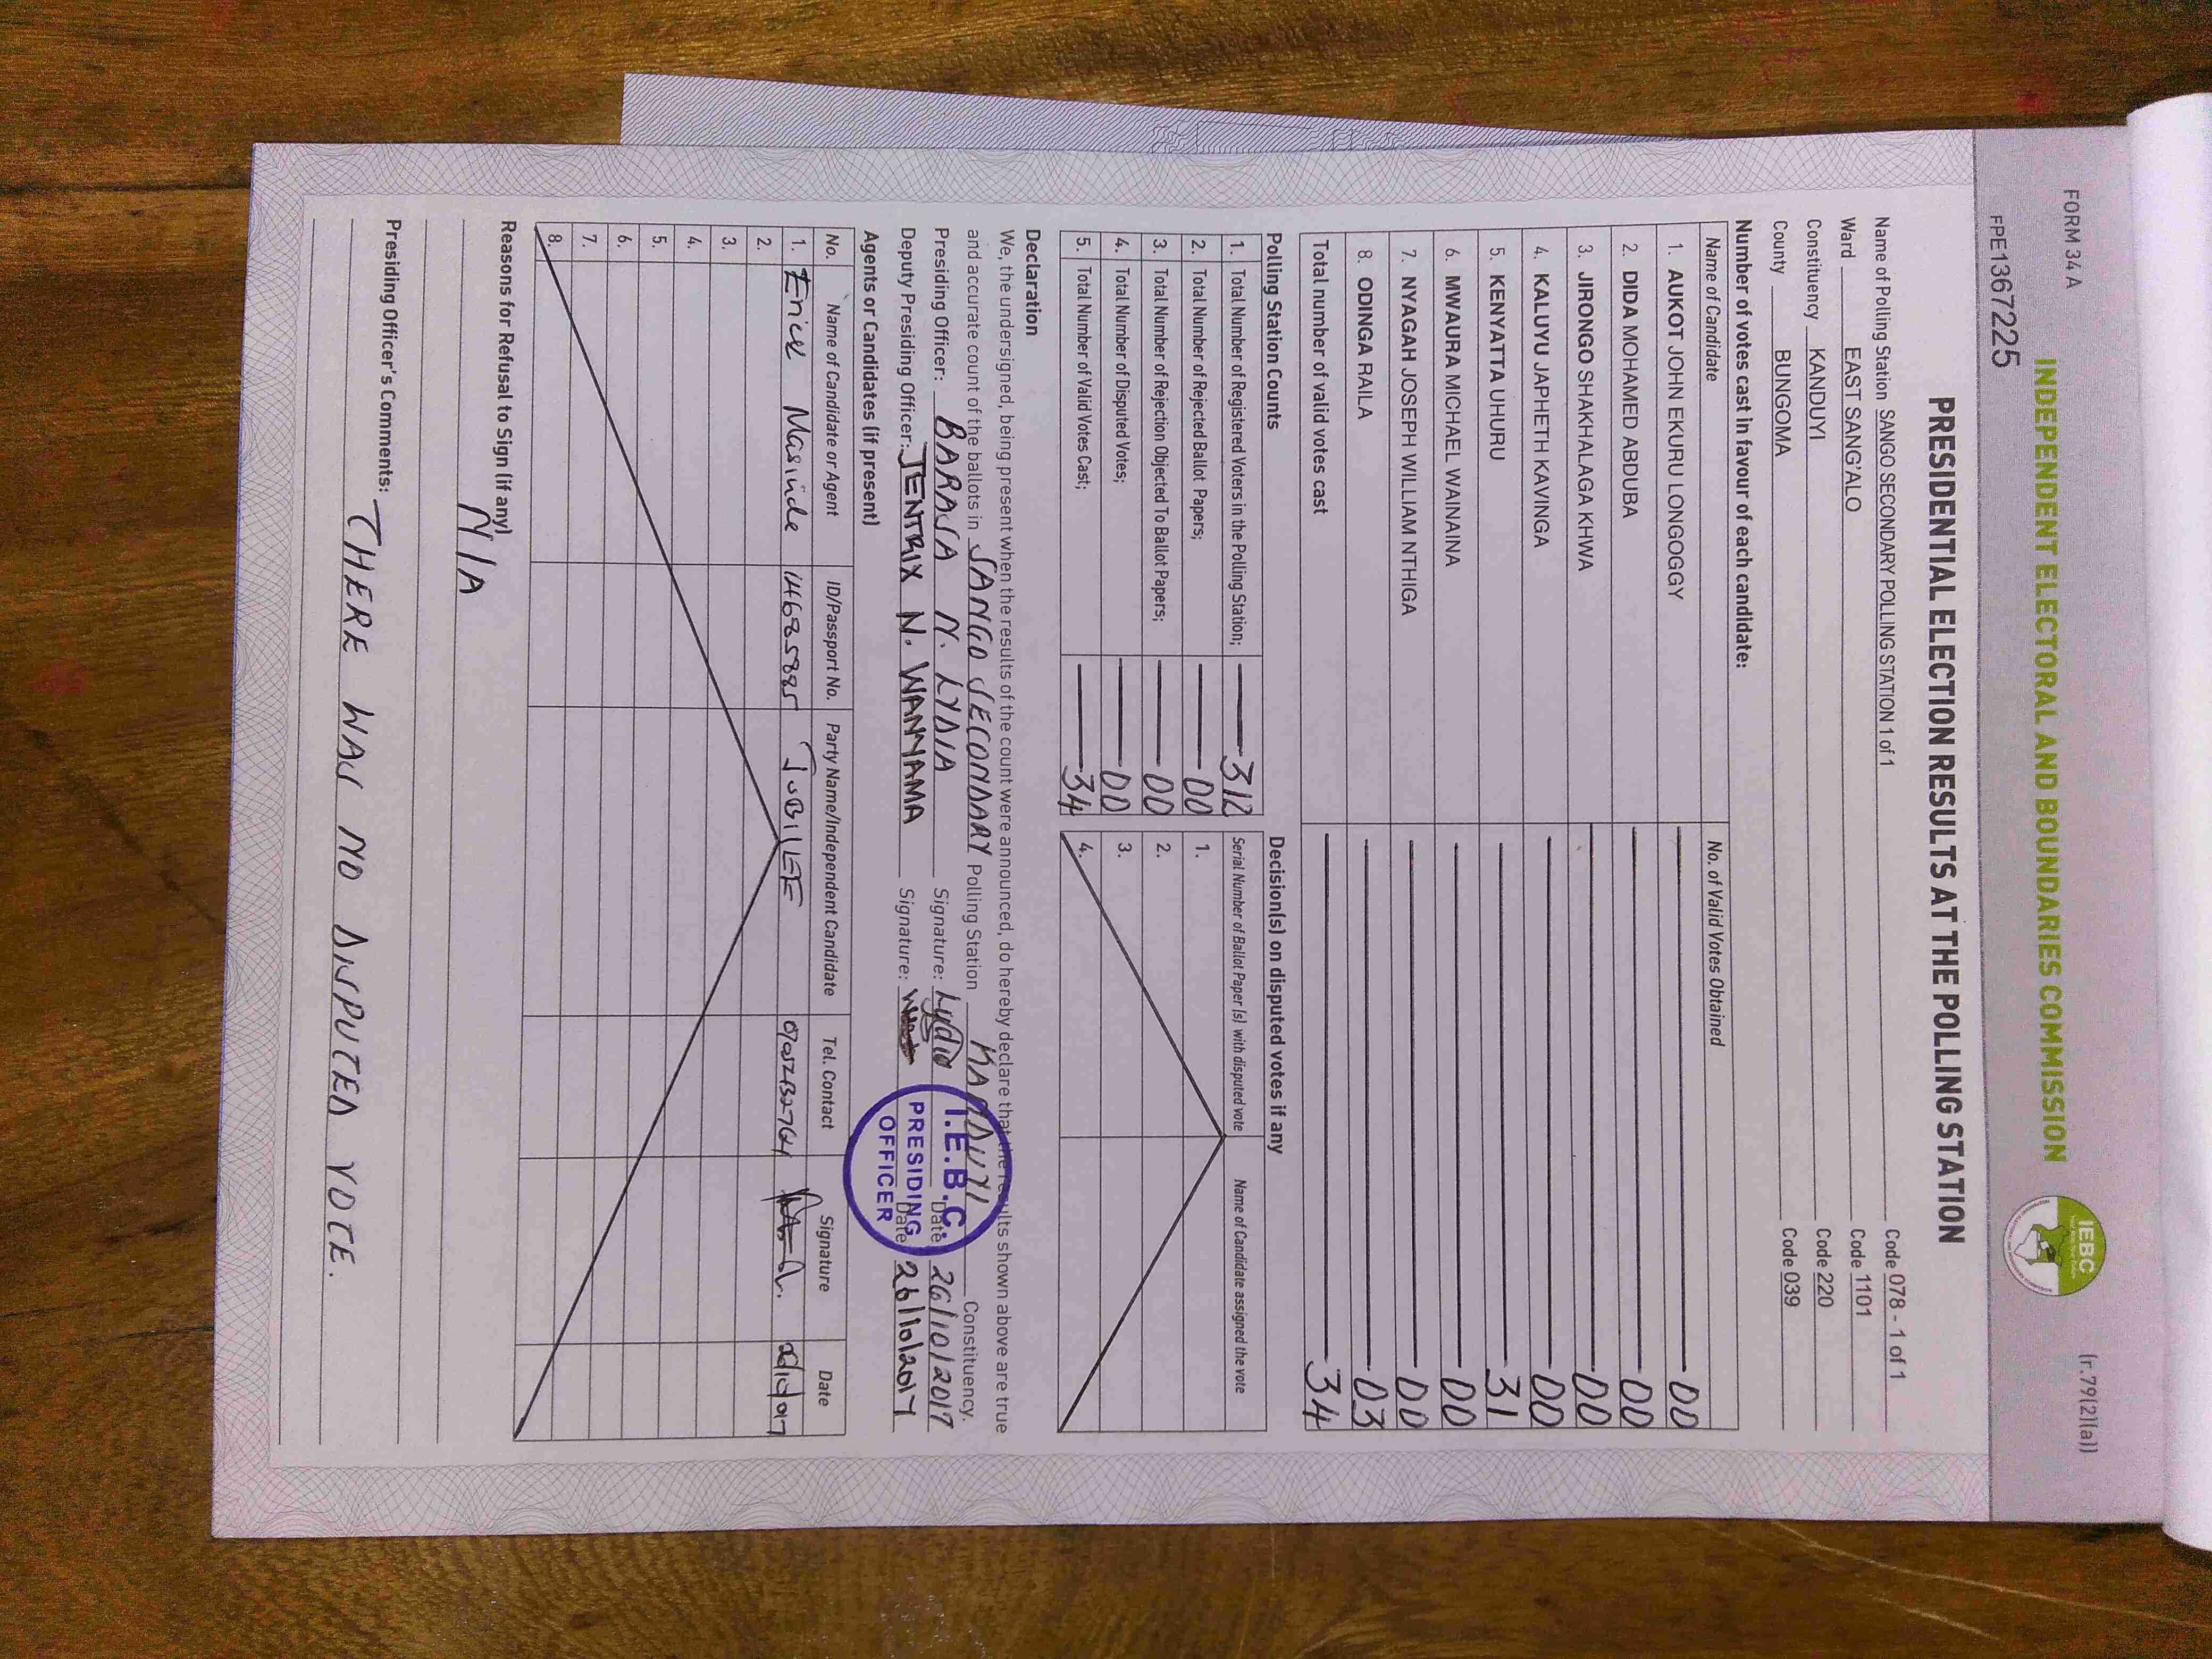 FORM 34 A
(r.79(2)(a))
INDEPENDENT ELECTORAL AND BOUNDARIES COMMISSION
IEBC
FPE1367225
PRESIDENTIAL ELECTION RESULTS AT THE POLLING STATION
Name of Polling Station SANGO SECONDARY POLLING STATION 1 of 1 Code 078 - 1 of 1
Ward EAST SANG'ALO Code 1101
Constituency KANDUYI Code 220
County BUNGOMA Code 039
Number of votes cast in favour of each candidate:
Name of Candidate No. of Valid Votes Obtained
1. AUKOT JOHN EKURU LONGOGGY 00
2. DIDA MOHAMED ABDUBA 00
3. JIRONGO SHAKHALAGA KHWA 00
4. KALUYU JAPHETH KAVINGA 00
5. KENYATTA UHURU 31
6. MWAURA MICHAEL WAINAINA 00
7. NYAGAH JOSEPH WILLIAM NTHIGA 00
8. ODINGA RAILA 03
Total number of valid votes cast 34
Polling Station Counts
1. Total Number of Registered Voters in the Polling Station; 312
2. Total Number of Rejected Ballot Papers; 00
3. Total Number of Rejection Objected To Ballot Papers; 00
4. Total Number of Disputed Votes; 00
5. Total Number of Valid Votes Cast; 34
Decision(s) on disputed votes if any
Serial Number of Ballot Paper (s) with disputed vote Name of Candidate assigned the vote
1.
2.
3.
4.
Declaration
We, the undersigned, being present when the results of the count were announced, do hereby declare that the results shown above are true
and accurate count of the ballots in SANGO SECONDARY Polling Station KANDUYI Constituency.
Presiding Officer: BARASA N. LYDIA Signature: Lydia Date 26/10/2017
Deputy Presiding Officer: JENTRIX N. WANYAMA Signature: Date 26/10/2017
I.E.B.C.
PRESIDING
OFFICER
Agents or Candidates (if present)
No. Name of Candidate or Agent ID/Passport No. Party Name/Independent Candidate Tel. Contact Signature Date
1. Erick Masinde 14685885 JUBILEE
2.
3.
4.
5.
6.
7.
8.
Reasons for Refusal to Sign (if any)
N/A
Presiding Officer's Comments:
THERE WAS NO DISPUTED VOTE.